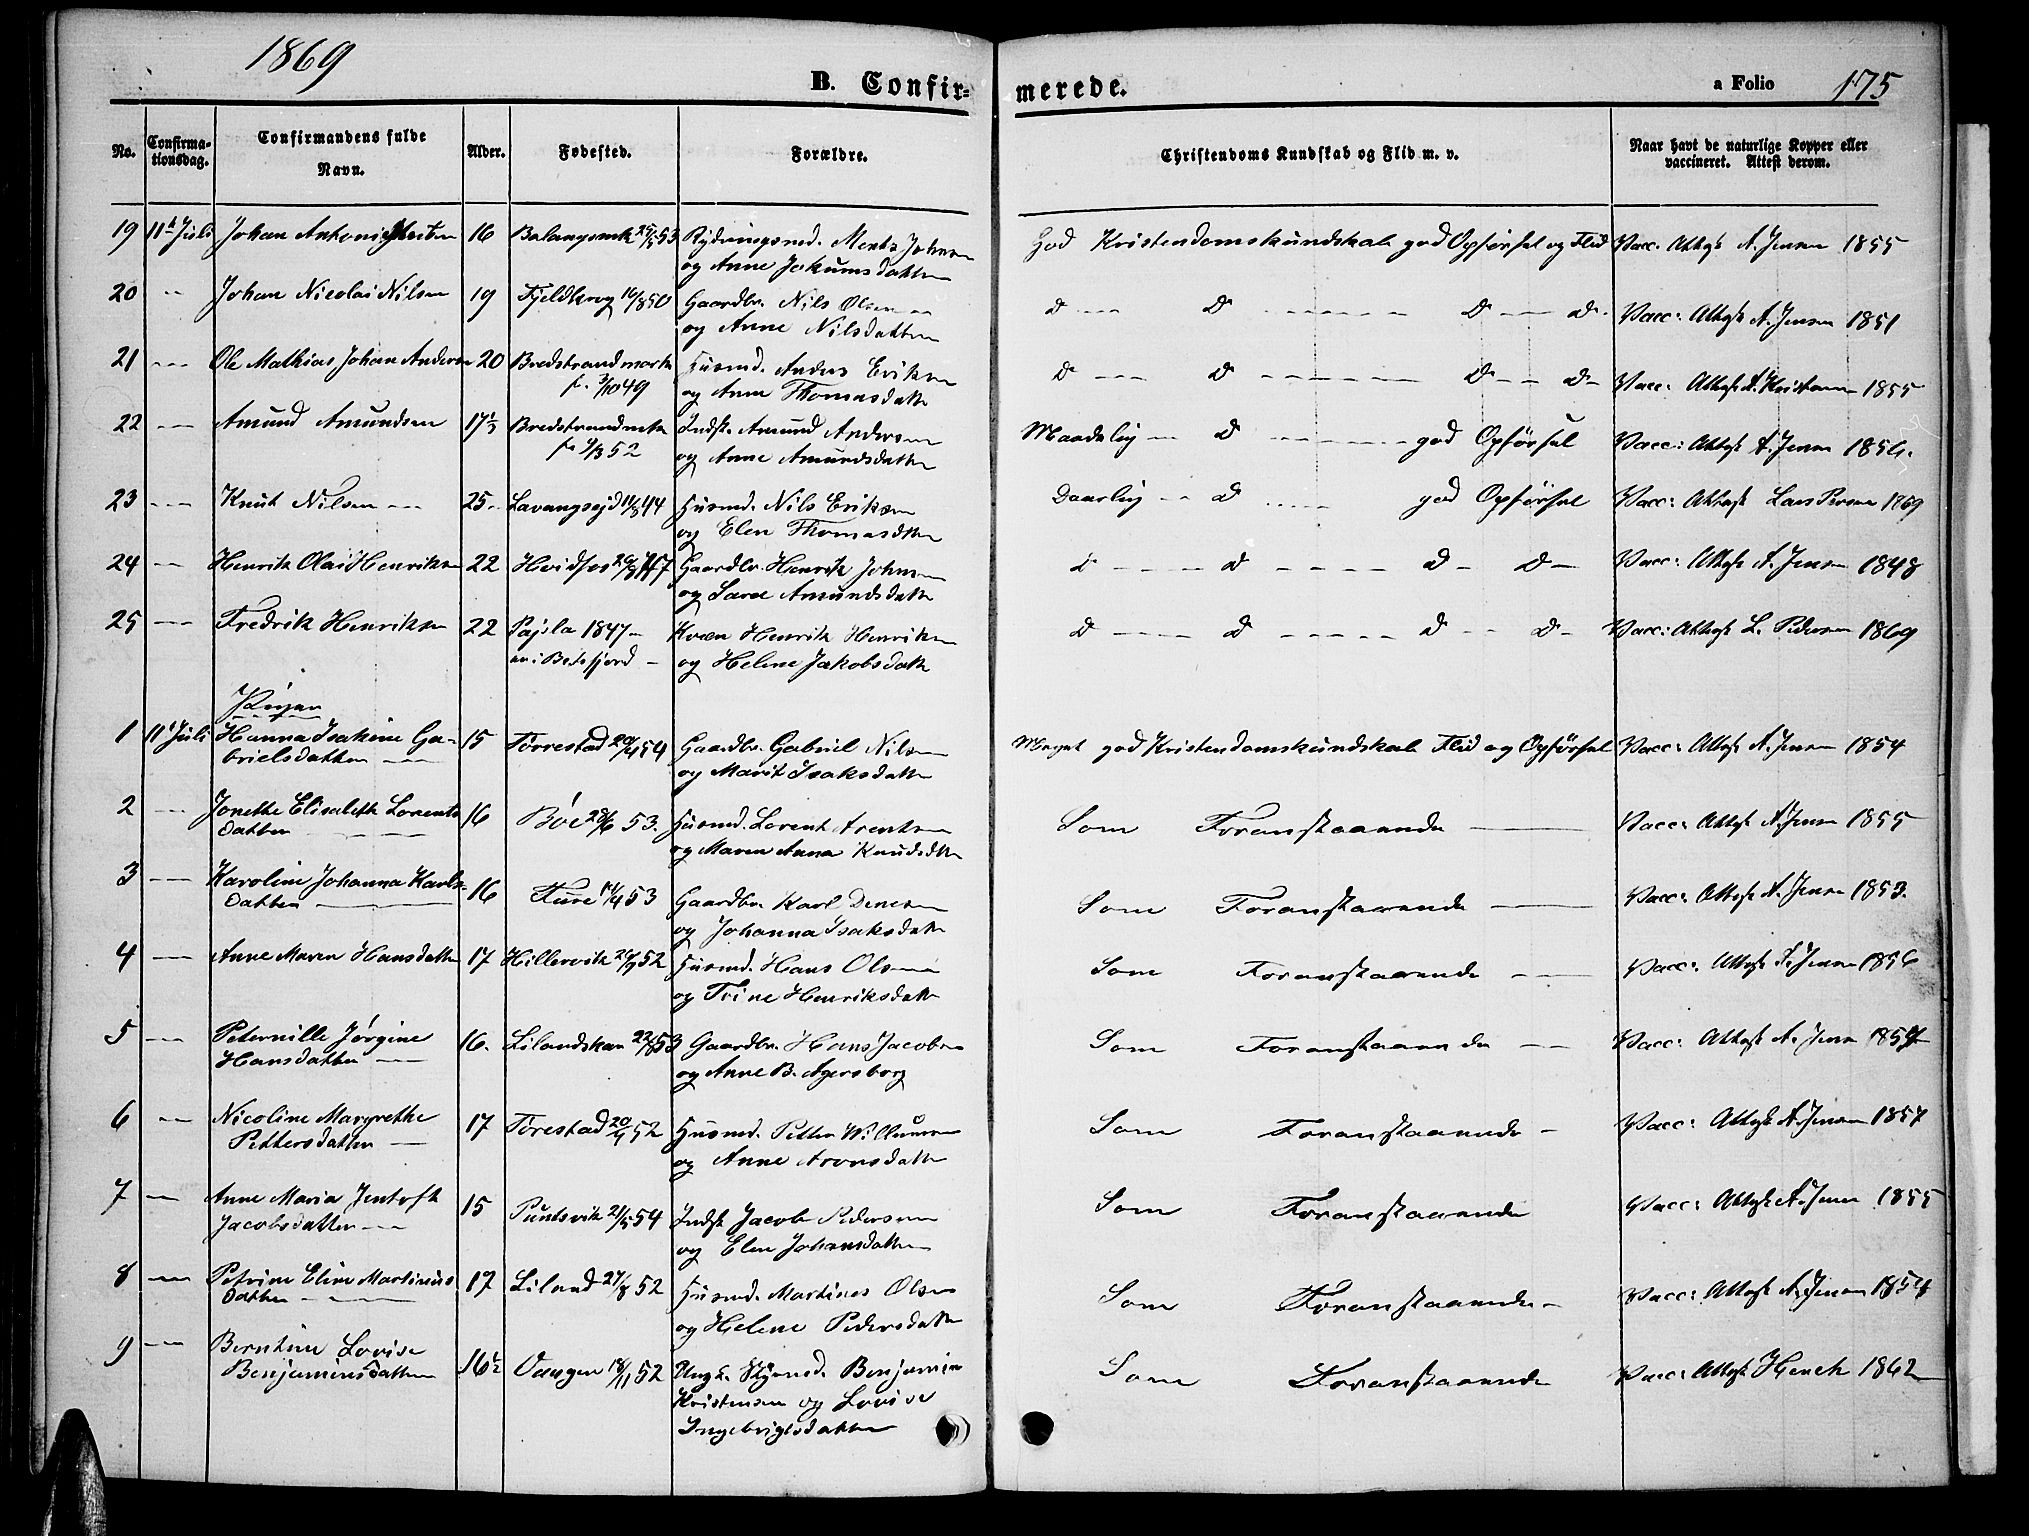 1869
B. Confir=
merede.
a Folio 175
No. Confirma-tionsdag. Confirmandens fulde Navn. Alder. Fødested. Forældre. Christendoms Kundskab og Flid m. v. Naar havt de naturlige Kopper eller vaccineret. Attest derom.
19 11te Juli Johan Antoni 16 53 Mentz Johnsen God Kristendomskundskab god Opførsel og Flid Vacc: Attest A. Jensen 1855
og Anne Jakumsdatter
20 Johan Nicolai Nilsen 19 Fjeldkrog 16/8 50 Gaardbr. Nils Olsen D D D D Vacc: Attest A. Jensen 1851
og Anne Nilsdatter
21 Ole Mathias Johan Andersen 20 Bredstrandmark Husmd. Anders Eriksen D D D D Vacc: Attest A. Kristensen 1855
f. 3/10 49 og Anne Thomasdatter
22 Amund Amundsen Bredstrandmk Indst. Amund Andersen Maadelig D god Opførsel Vacc: Attest A. Jensen
52 og Anne Amundsdatter
23 Knut Nilsen 25 Lavangseid 44 Husmd. Nils Eriksen Daarlig D god Opførsel Vacc: Attest Lars Persen 1869
og Elen Thomasdtter
24 Henrik Olai Henriksen 22 47 Gaardbr. Henrik Johnsen D D D D Vacc: Attest A. Jensen 1848
og Sara Amundsdatter
25 Fredrik Henriksen 22 Pajala 1847 Kvæn Henrik Henriksen D D D D Vacc: Attest L. Pedersen 1869
og Helene Jakobsdatter
Piger
1 11te Juli Hanna Isakine Ga- 15 Torrestad 20/4 54 Gaardbr. Gabriel Nilsen Meget god Kristendomskundskab Flid og Opførsel Vacc: Attest A. Jensen 1854
brielsdatter og Marit Isaksdatter
2 Jonette Elisabeth Lorents 16 Böe 28/6 53. Husmd. Lorent Arentsen Som Foranstaaende Vacc: Attest A. Jensen 1855
datter og Maren Anna Knudsdtter
3 Karoline Johanna Karls- 16 53 Gaardbr. Karl Som Foranstaaende Vacc: Attest A. Jensen 1853.
datter og Johanna Isaksdatter
4 Anne Maren Hansdatter 17 Hillervik 52 Husmd. Hans Olsen Som Foranstaaende Vacc: Attest A. Jensen 1856
og Trine Henriksdatter
5 Peternille Jørgine 16. 53 Gaardbr. Hans Jacobsen Som Foranstaaende Vacc: Attest A. Jensen
Hansdatter og Anne B. Agersborg
6 Nicoline Margrethe 17 Torestad 52 Husmd. Petter Willumsen Som Foranstaaende Vacc: Attest A. Jensen 1857
Pettersdatter og Anne Aronsdatter
7 Anne Maria Jentoft 15 Puntsvik 54 Indst Jacob Pedersen Som Foranstaaende Vacc: Attest A. Jensen 1855
Jacobsdatter og Elen Johansdatter
8 Petrine Eline Martinius 17 Liland 27/8 52 Husmd. Martines Olsen Som Foranstaaende Vacc: Attest A. Jensen 1854
datter og Helene Pedersdatter
9 Berntine Lovise 16½ Vangen 18/11 52 Benjamin Som Foranstaaende Vacc: Attest Hench 1862
Benjaminsdatter Kristensen og Lovise
Ingebrigtsdatter